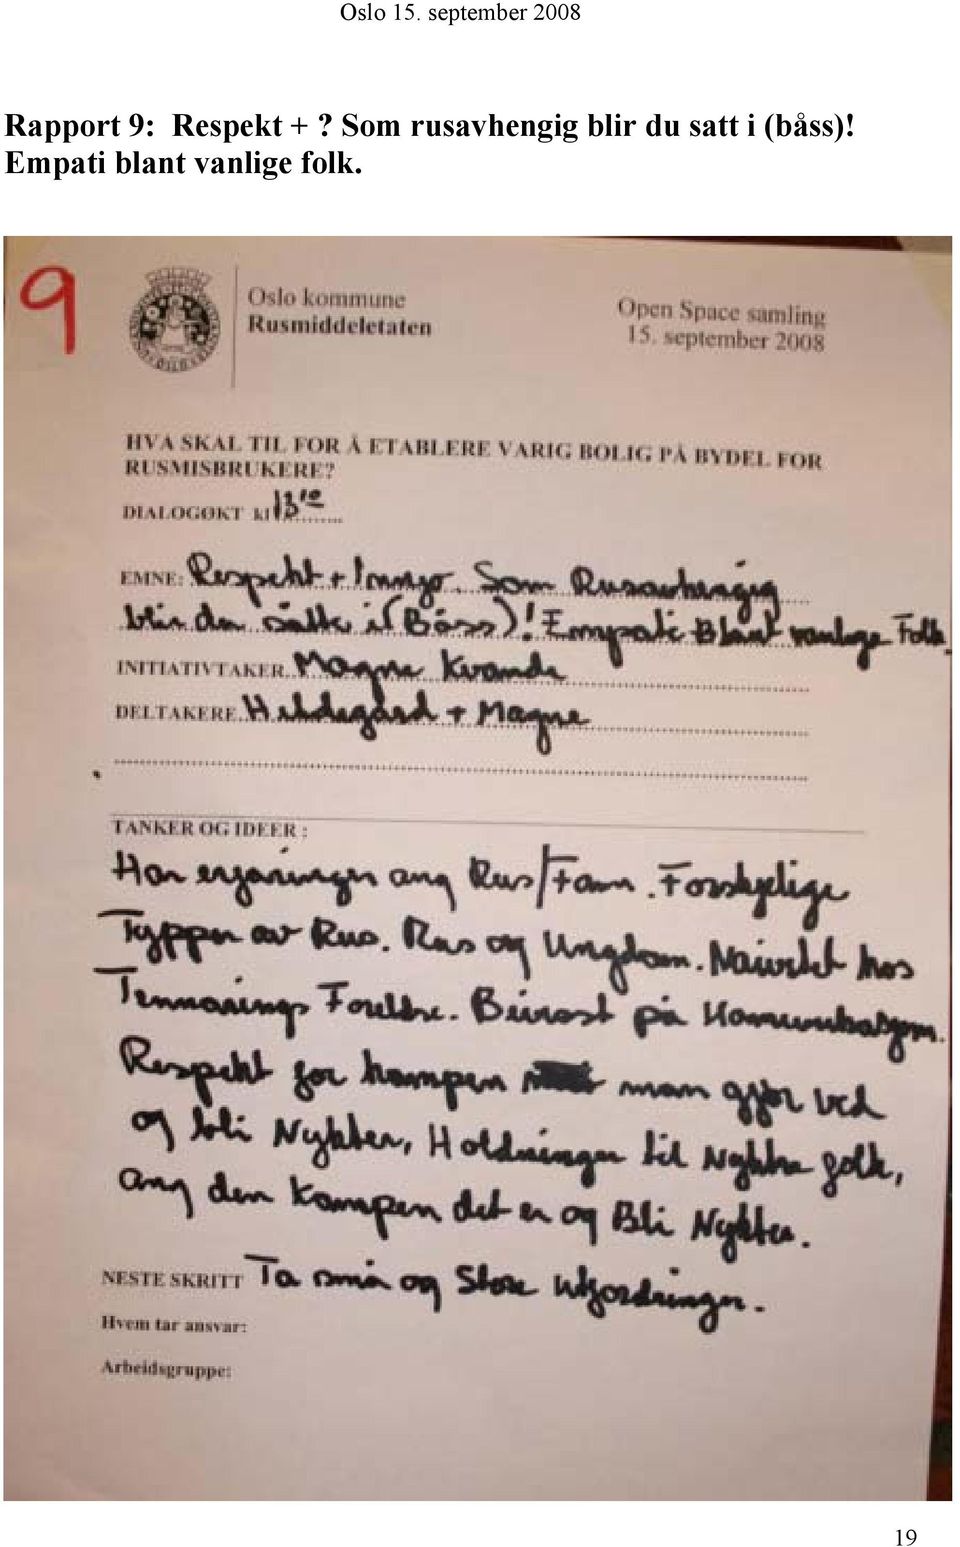 Oslo 15. september 2008
Rapport 9: Respekt + ? Som rusavhengig blir du satt i (båss)!
Empati blant vanlige folk.
9
Oslo kommune
Rusmiddeletaten
Open Space samling
15. september 2008
OSLO
HVA SKAL TIL FOR Å ETABLERE VARIG BOLIG PÅ BYDEL FOR
RUSMISBRUKERE?
DIALOGØKT kl 13 10
EMNE: Respekt + . Som Rusavhengig
blir du sått i (Båss)! Empati Blant vanlige Folk.
INITIATIVTAKER Magne Kvande
DELTAKERE Hildegård + Magne
TANKER OG IDEER :
Har erfaringer ang Rus/Fam. Forskjelige
Typper av Rus. Rus og Ungdom. Naivitet hos
Tennårings Foreldre. Beviost på Komunikasjon.
Respekt for kampen man gjør ved
og bli Nykter, Holdninger til Nyktre folk,
ang den kampen det er og Bli Nykter.
NESTE SKRITT Ta små og Store utfordringer.
Hvem tar ansvar:
Arbeidsgruppe:
19